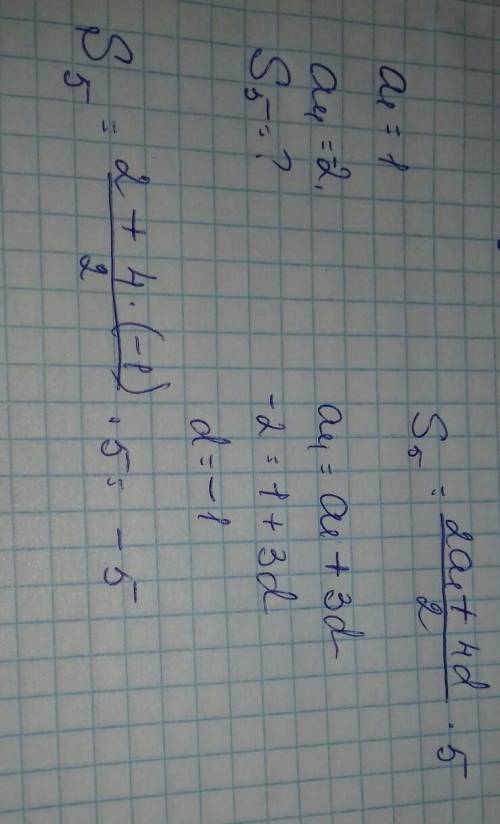 a₁ = 1
a₄ = -2.
S₅ = ?
S₅ = (2a₁ + 4d)/2 · 5
a₄ = a₁ + 3d
-2 = 1 + 3d
d = -1
S₅ = (2 + 4 · (-1))/2 · 5 = -5